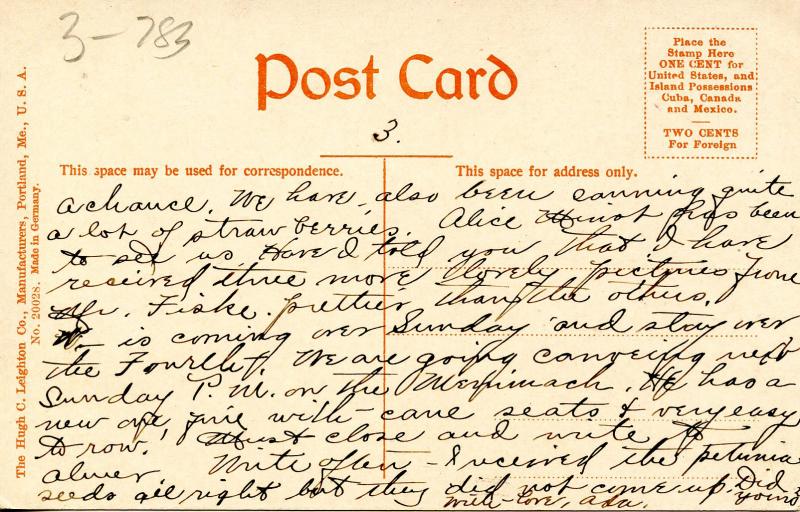 3-783
Post Card
Place the
Stamp Here
ONE CENT for
United States, and
Island Possessions
Cuba, Canada
and Mexico.
TWO CENTS
For Foreign
3.
This space may be used for correspondence.
This space for address only.
a chance. We have also been canning quite
a lot of straw berries. Alice has been
to see us. Have I told you that I have
received three more lovely pictures from
Mr. Fiske. prettier than the others.
is coming over Sunday and stay over
the Fourth. We are going canoeing next
Sunday P. M. on the Merrimack. He has a
new one fine with cane seats & very easy
to row! Must close and write to
Write often - I received the petunia
seeds all right but they did not come up. Did
yours?
With love, Ada.
The Hugh C. Leighton Co., Manufacturers, Portland, Me., U. S. A.
No. 20028. Made in Germany.